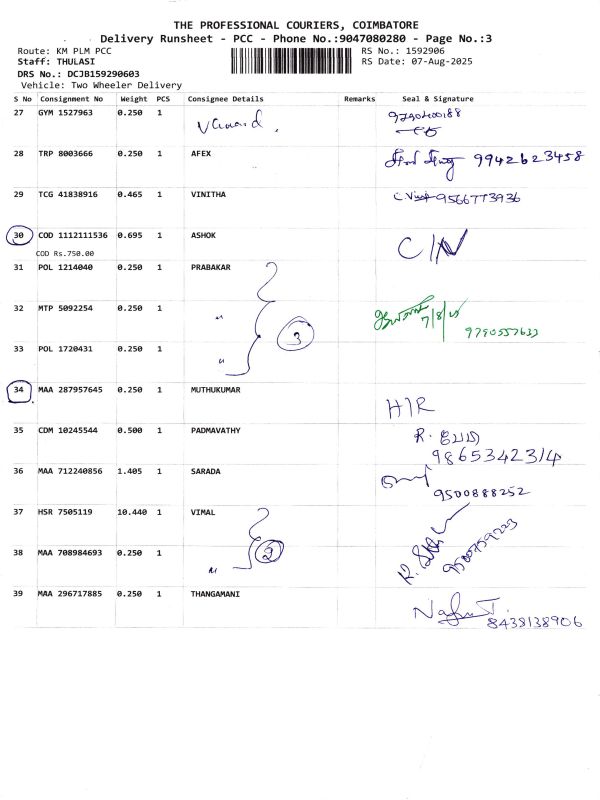 THE PROFESSIONAL COURIERS, COIMBATORE
Delivery Runsheet - PCC - Phone No.:9047080280 - Page No.:3
Route: KM PLM PCC RS No.: 1592906
Staff: THULASI RS Date: 07-Aug-2025
DRS No.: DCJB159290603
Vehicle: Two Wheeler Delivery
S No Consignment No Weight PCS Consignee Details Remarks Seal & Signature
27 GYM 1527963 0.250 1
28 TRP 8003666 0.250 1 AFEX 9942623458
29 TCG 41838916 0.465 1 VINITHA 9566773936
30 COD 1112111536 0.695 1 ASHOK C/N
COD Rs.750.00
31 POL 1214040 0.250 1 PRABAKAR
32 MTP 5092254 0.250 1 " 7/8/25
3
9790557633
33 POL 1720431 0.250 1 "
34 MAA 287957645 0.250 1 MUTHUKUMAR H/R
35 CDM 10245544 0.500 1 PADMAVATHY R.
9865342314
36 MAA 712240856 1.405 1 SARADA
9500888252
37 HSR 7505119 10.440 1 VIMAL
2
38 MAA 708984693 0.250 1 "
39 MAA 296717885 0.250 1 THANGAMANI
8438138906